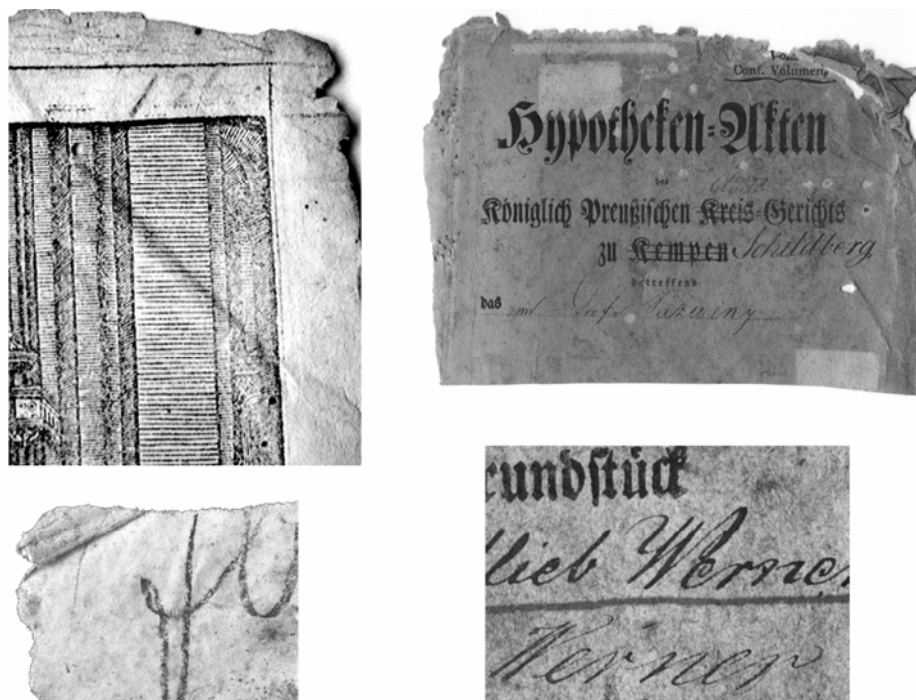 Conf. Volumen,
Hypotheken-Akten
des
Königlich Preußischen Kreis-Gerichts
zu Kempen Schildberg
betreffend
das
undstück
lieb Werner
Werner